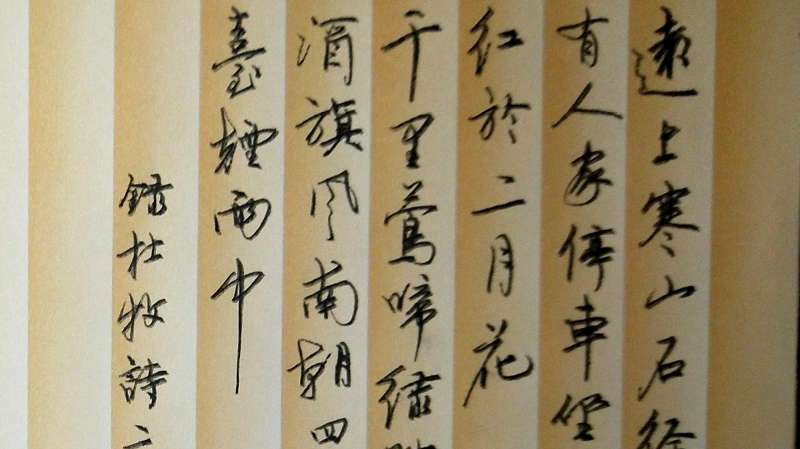 遠上寒山石徑
有人家停車坐
紅於二月花
千里鶯啼綠
酒旗風南朝四
臺煙雨中
錄杜牧詩二